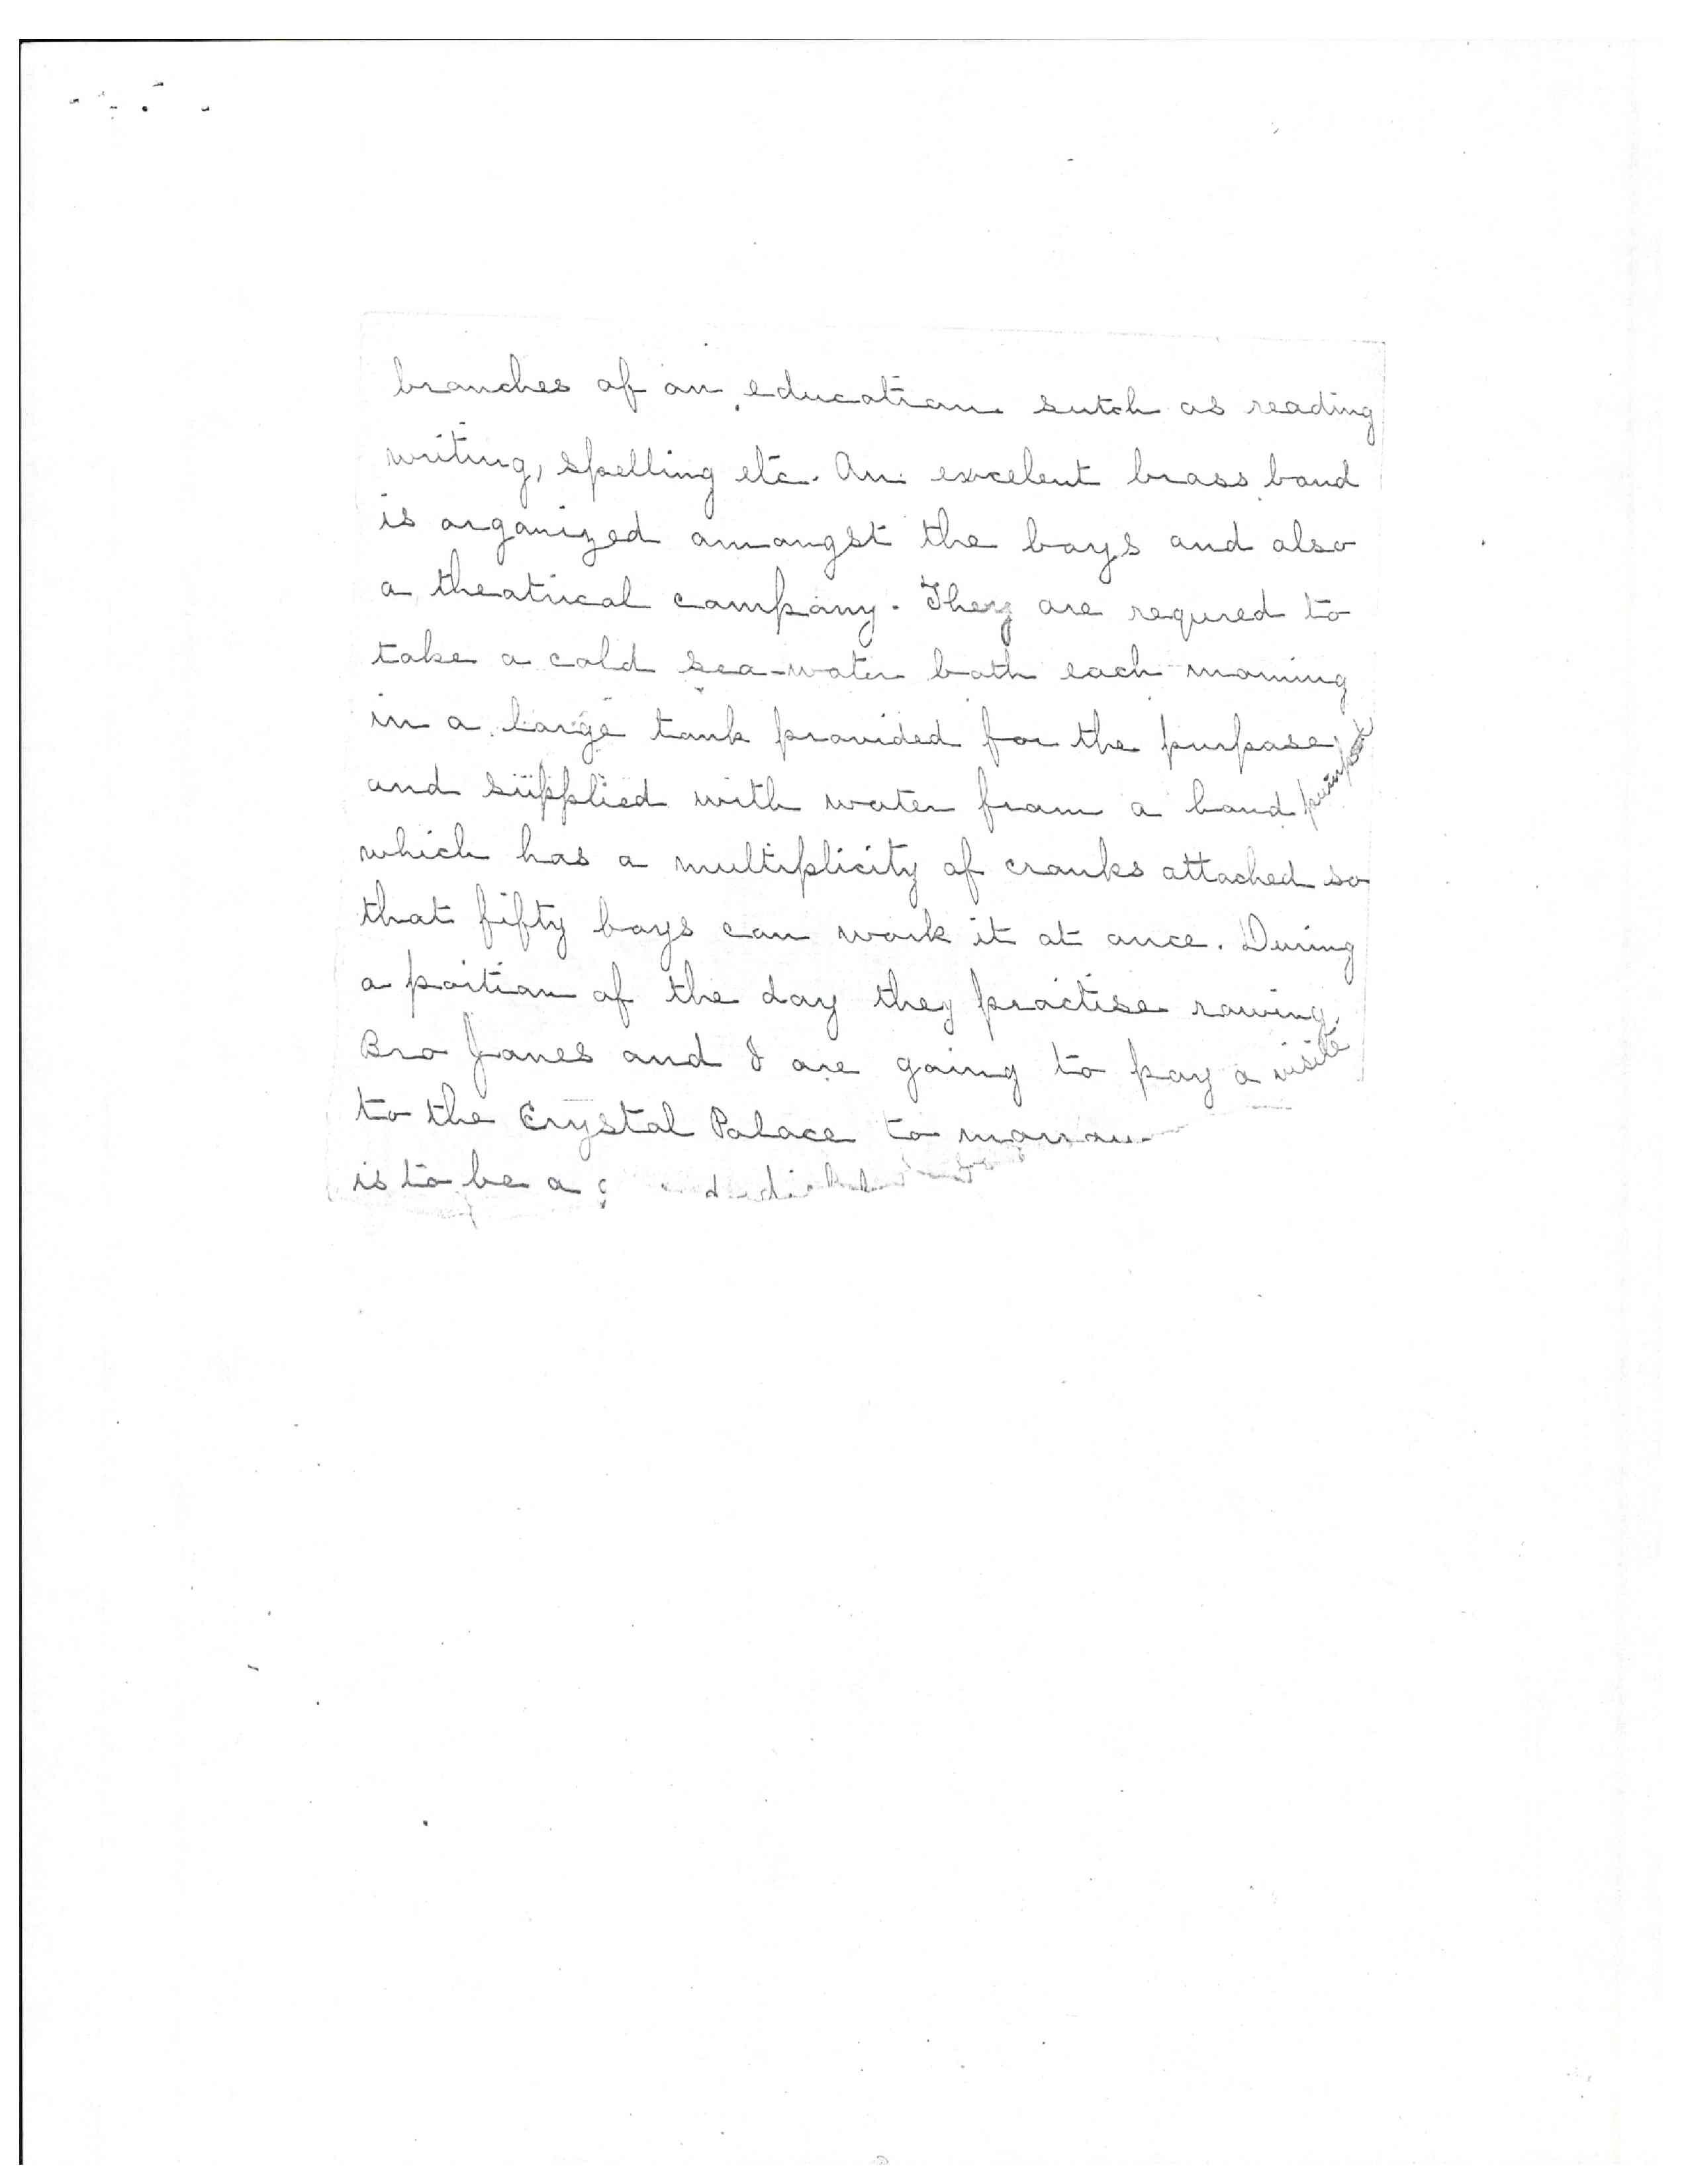 branches of an education sutch as reading
writing, spelling etc. An excelent brass band
is organized amongst the boys and also
a theatrical company. They are requred to
take a cold sea-water bath each morning
in a large tank provided for the purpose,
and supplied with water from a hand pump
which has a multiplicity of cranks attached so
that fifty boys can work it at once. During
a portion of the day they practise rowing.
Bro Jones and I are going to pay a visite
to the Crystal Palace to morrow
is to be a